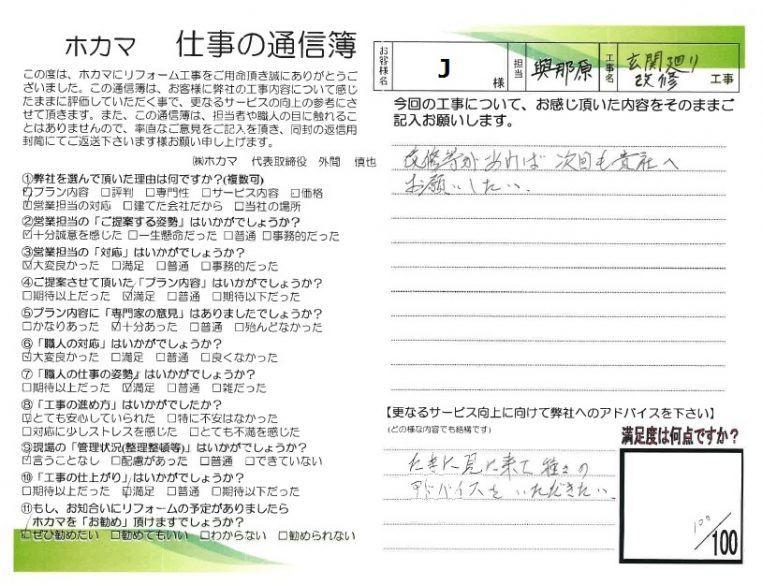 ホカマ 仕事の通信簿
この度は、ホカマにリフォーム工事をご用命頂き誠にありがとうご
ざいました。この通信簿は、お客様に弊社の工事内容について感じ
たままに評価していただく事で、更なるサービスの向上の参考にさ
せて頂きます。また、この通信簿は、担当者や職人の目に触れるこ
とはありませんので、率直なご意見をご記入を頂き、同封の返信用
封筒にてご返送下さいます様お願い申し上げます。
㈱ホカマ 代表取締役 外間 慎也
①弊社を選んで頂いた理由は何ですか?(複数可)
☑プラン内容 □評判 □専門性 □サービス内容 ☑価格
☑営業担当の対応 □建てた会社だから □当社の場所
②営業担当の「ご提案する姿勢」はいかがでしょうか?
☑十分誠意を感じた □一生懸命だった □普通 □事務的だった
③営業担当の「対応」はいかがでしょうか?
☑大変良かった □満足 □普通 □事務的だった
④ご提案させて頂いた「プラン内容」はいかがでしょうか?
□期待以上だった ☑満足 □普通 □期待以下だった
⑤プラン内容に「専門家の意見」はありましたでしょうか?
□かなりあった ☑十分あった □普通 □殆んどなかった
⑥「職人の対応」はいかがでしょうか?
☑大変良かった □満足 □普通 □良くなかった
⑦「職人の仕事の姿勢」はいかがでしょうか?
□期待以上だった ☑満足 □普通 □雑だった
⑧「工事の進め方」はいかがでしたか?
☑とても安心していられた □特に不安はなかった
□対応に少しストレスを感じた □とても不満を感じた
⑨現場の「管理状況(整理整頓等)」はいかがでしょうか?
☑言うことなし □配慮があった □普通 □できていない
⑩「工事の仕上がり」はいかがでしょうか?
□期待以上だった ☑満足 □普通 □期待以下だった
⑪もし、お知合いにリフォームの予定がありましたら
ホカマを「お勧め」頂けますでしょうか?
☑ぜひ勧めたい □勧めてもいい □わからない □勧められない
お客様名 J 様 担当 與那原 工事名 玄関廻り 改修 工事
今回の工事について、お感じ頂いた内容をそのままご
記入お願いします。
改修等があれば次回も貴社へ
お願いしたい.
【更なるサービス向上に向けて弊社へのアドバイスを下さい】
(どの様な内容でも結構です)
たまに見に来て種々の
アドバイスを いただきたい
満足度は何点ですか?
100/100